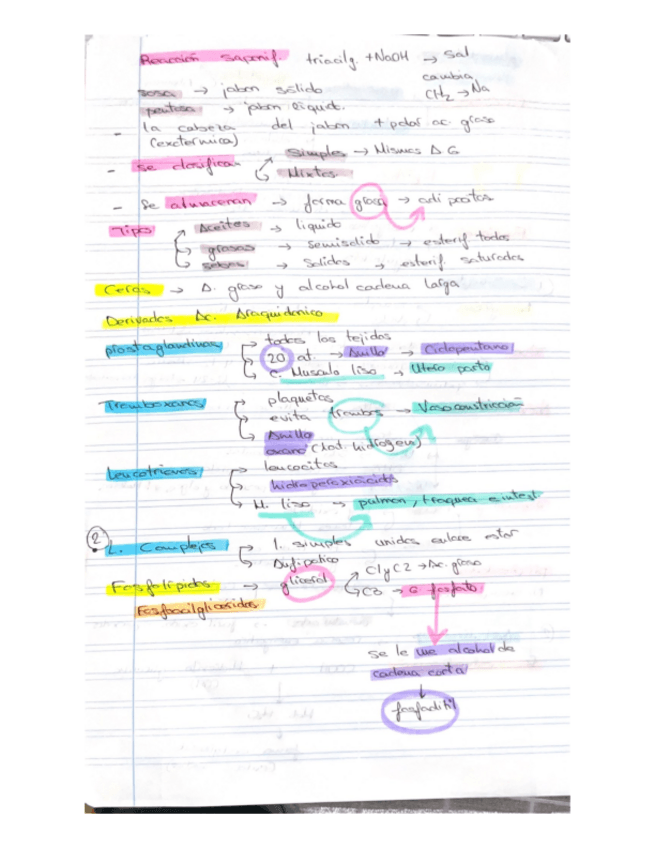 Reacción saponif. triacilg. + NaOH → Sal
cambia
CH2 → Na
sosa → jabon sólido
potasa → jabon liquid.
- la cabeza del jabon + polar ac. graso
(exotermica)
- se clasifican Simples → Mismos Δ G
Mixtos
- Se almacenan → forma grasa → adipocitos
Tipos Aceites → liquido
grasas → semisolido → esterif todos
sebos → Solidos → esterif. saturados
Ceras → Δ. graso y alcohol cadena larga
Derivados Ac. Araquidonico
prostaglandinas → todos los tejidos
20 at. → Anillo → Ciclopentano
C. Musculo liso → Utero parto
Tromboxanos → plaquetas
evita trombos → Vasoconstriccion
Anillo
oxano (1 at. hidrogeno)
leucotrienos → leucocitos
hidroperoxiacidos
M. liso → pulmon, traquea e intest
2 L. Complejos → l. simples unidos enlace ester
Anfipatico
Fosfolípidos → glicerol C1 y C2 → Ac. graso
C3 → G. fosfato
Fosfoacilglicéridos
se le une alcohol de
cadena corta
↓
fosfaditil